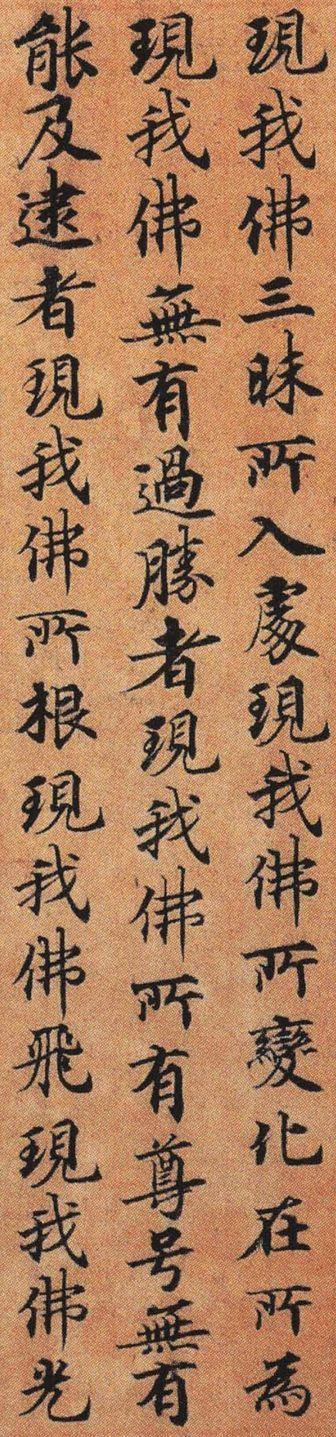 現我佛三昧所入處現我佛所變化在所為
現我佛無有過勝者現我佛所有尊号無有
能及逮者現我佛所根現我佛飛現我佛光